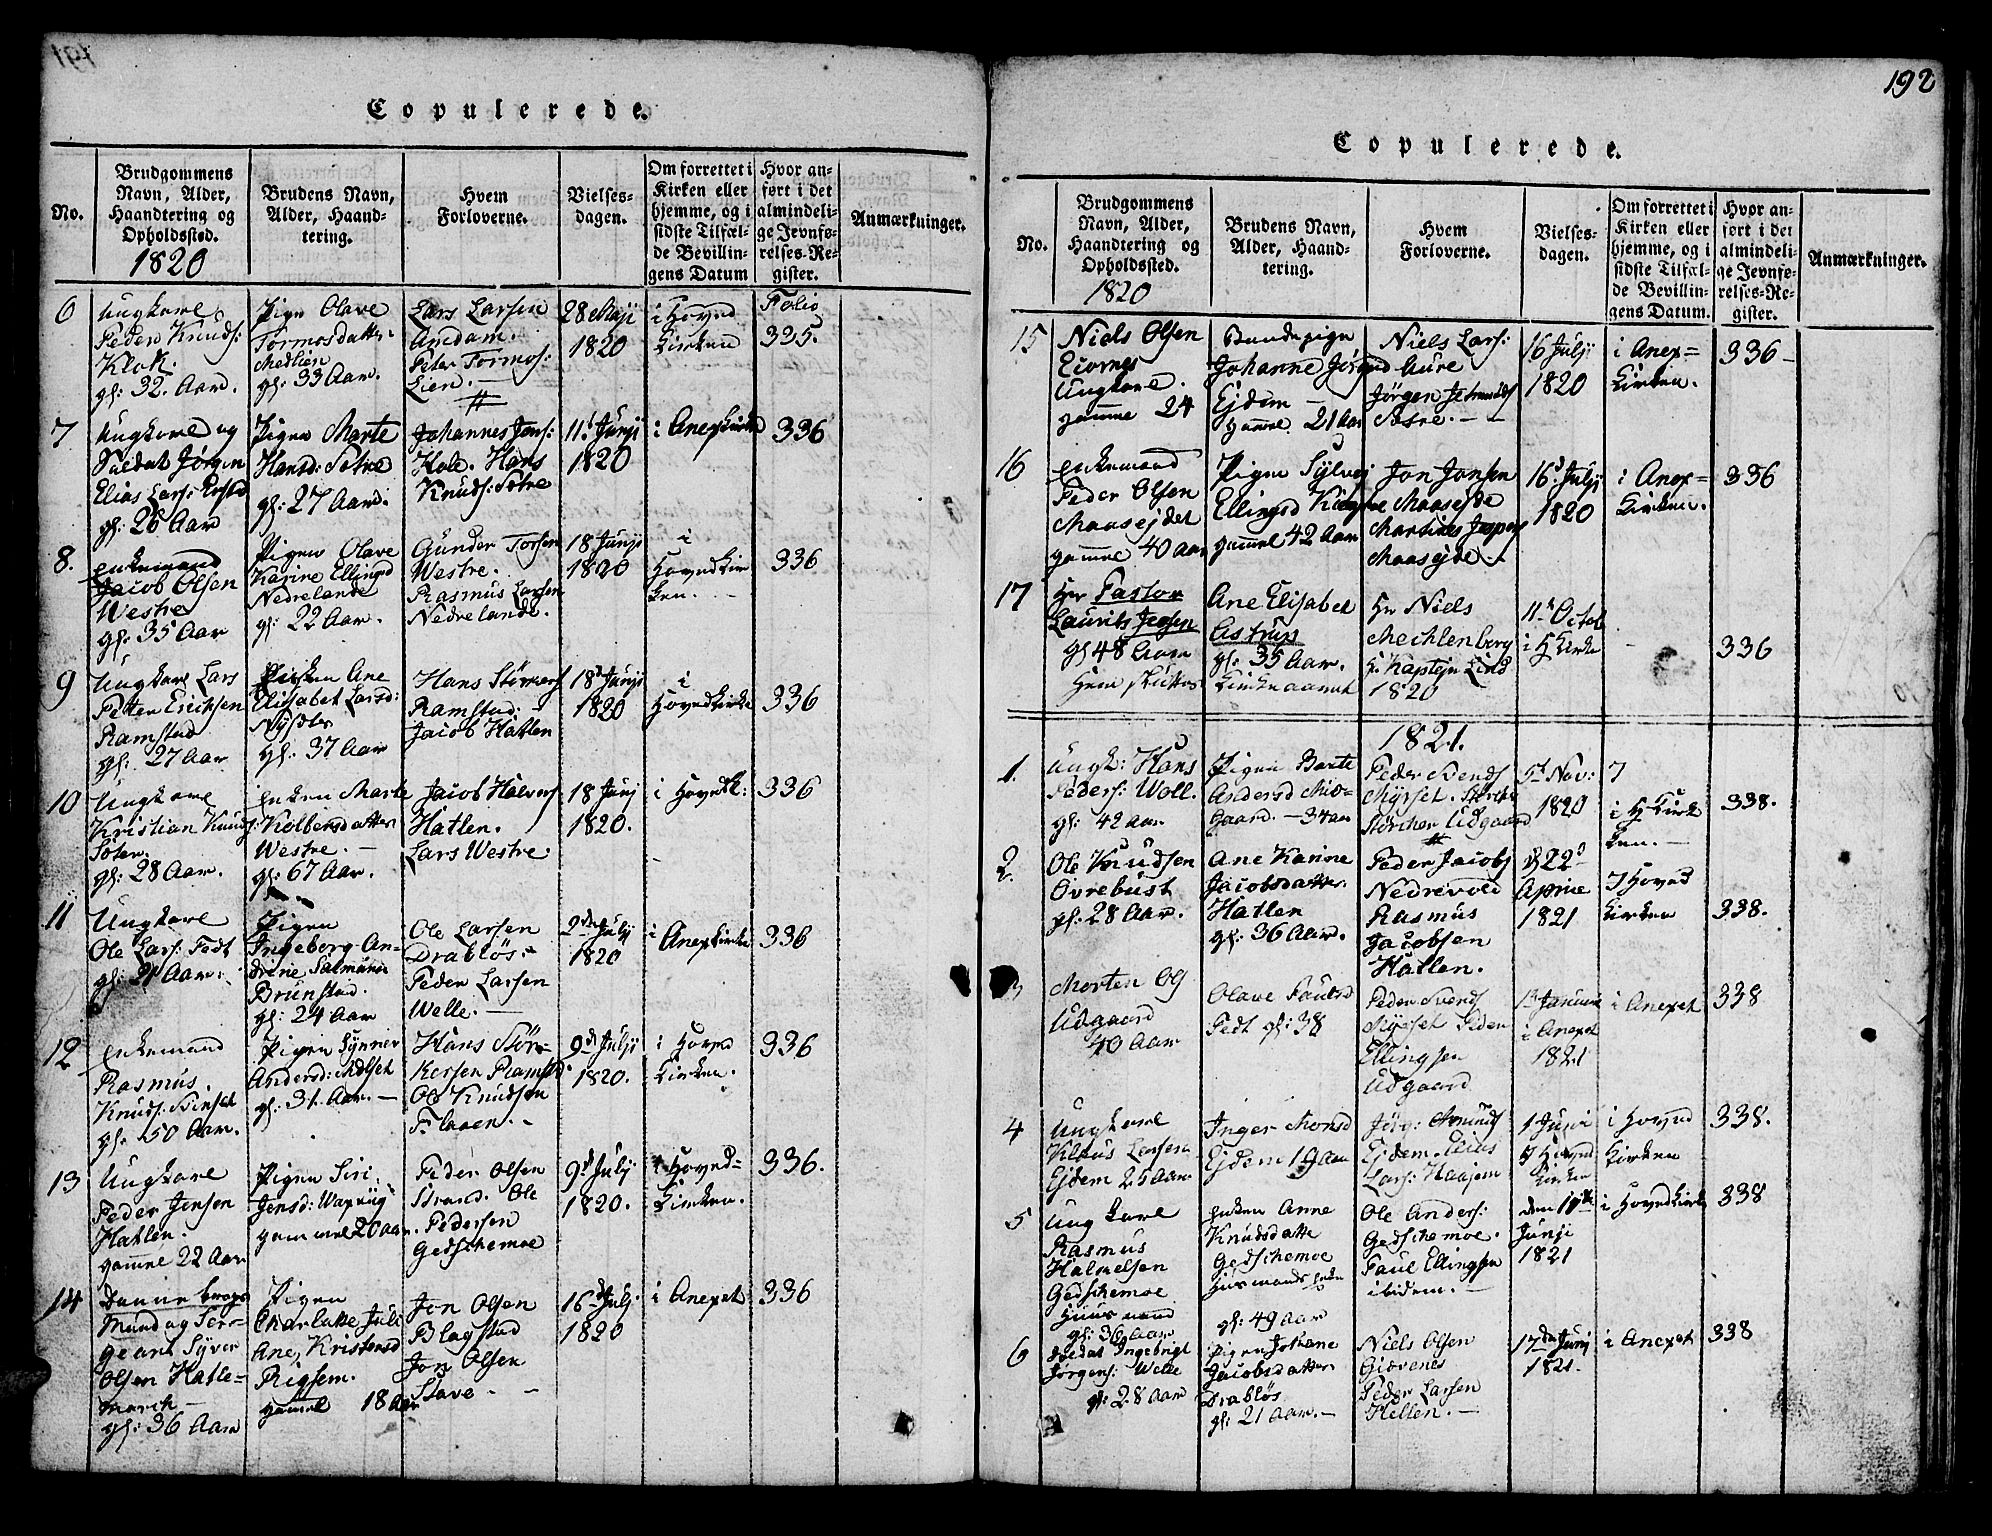 191
Copulerede.
No.
Brudgommens
Navn, Alder,
Haandtering og
Opholdssted.
1820
Brudens Navn,
Alder, Haand-
tering.
Hvem
Forloverne.
Vielses-
dagen.
Om forrettet i
Kirken eller
hjemme, og i
sidste Tilfæl-
de Bevillin-
gens Datum
Hvor an-
ført i det
almindeli-
ge Jevnfø-
relses-Re-
gister.
Anmærkninger.
6
Ungkarl
Peder Knuds:
Klok.
gl: 32. Aar.
Pige Olave
Tormosdatter
Medlien
gl: 33 Aar.
Lars Larsen
Amdam.
Peter Tormos:
Lien. —
28 Maji
1820
i Hoved
Kirken
Folio
335.
7
Ungkarl og
Soldat Jørgen
Elias Lars:
gl: 26 Aar
Pigen Marte
Hansd: Søtre
gl: 27 Aar.
Johannes Jons:
Hole. Hans
Knuds: Søtre
11 Junji
1820
i Anexkirke
336
8.
Enkemand
Jacob Olsen
Westre
gl: 35 Aar
Pigen Olave
Karine Ellingsd
Nedrelande
gl: 22 Aar.
Gunder Torsen
Westre.
Rasmus Larsen
Nedrelande.
18 Junji
1820
i
Hovedkir
ken. —
336
9
Ungkarl Lars
Petter Erichsen
Ramstad
gl: 27 Aar
Ane
Elisabet Larsd:
gl: 37 Aar
Hans Størkers
Ramstad. -
Jacob Hatlen
18d Junji
1820
i
Hovedkirke
336
10
Ungkarl
Kristian Knuds:
Søter.
gl: 28 Aar.
Enken Marte
Kolbensdatter
Westre. —
gl: 67 Aar.
Jacob Halvors
Hatlen.
Lars Westre.
18 Junj
1820.
i Hovedk:
336
11
Ungkarl
Ole Lars: Fedt
gl: 21 Aar.
Pigen
Ingeborg An-
drine Salmund
Brunstad.
gl: 24 Aar
Ole Larsen
Drabløs.
Peder Larsen
Welle. —
2den July
1820
i Anexkirke
336
12
Enkemand
Rasmus
Knuds:
gl: 50 Aar.
Pigen Synner
Andersd:
gl: 31. Aar. —
Hans Stør-
kersen Ramstd
Ole Knudsen
Flaaen. -
9d Julji
1820.
i Hoved
Kirken.
336
13
Ungkarl
Peder Jensen
Hatlen.
gammel 22 Aar
Pigen Siri
Jensd:
gammel 20 aar.
Peder Olsen
Strand. Ole
Pedersen
Gedschemoe
9d July
1820.
i Hoved-
Kirken.
336.
14
Dannebrogs
Mand og Ser-
geant Syver
Olsen Hatle-
march —
gl: 36 Aar
Pigen
Charlotte Juli
Ane, Kristensd
Rigsem.
gammel 18 Aar
Jon Olsen
Blagstad
Jon Olsen
Stave - -
16d Julj
1820
i Anexet
336
192
Copulerede.
No.
Brudgommens
Navn, Alder,
Haandtering og
Opholdssted.
1820
Brudens Navn,
Alder, Haand-
tering.
Hvem
Forloverne.
Vielses-
dagen.
Om forrettet i
Kirken eller
hjemme, og i
sidste Tilfæl-
de Bevillin-
gens Datum.
Hvor an-
ført i det
almindeli-
ge Jevnfø-
relses-Re-
gister.
Anmærkninger.
15
Niels Olsen
Ungkarl.
gamme 24
Bondepige
Johanne Jørgend
Ejdem —
gammel 21 Aar
Niels Lars:
Aure
Jørgen
Søtre. —
16 Julji
1820
i Anex=
Kirken.
336 —
16
Enkemand
Peder Olsen
Maasejdet
gamme 40 aar
Pigen Sylvej
Ellingsd
gammel 42 Aar
Jon Jonsen
Maasejde
Martines
Maasejde.
16d Julji
1820
i Anex=
Kirken.
336
17
Hr Pastor
Laurits
gl 48 Aar
Ane Elisabet
Astrup
gl: 35 Aar.
Hr Niels
Mechlenberg
Kaptejn Lind
1820
11te Octob
i H Kirke
336
1821.
1.
Ungk: Hans
Peders: Woll.
gl: 42 aar
Pigen Barte
Andersd Mio-
gaard. — 34 aar
Peder Svends
Myrset.
Størcher Udgaard
5t Nov:
1820
i H Kirk
ken. —
338.
2.
Ole Knudsen
Øvrebust
gl: 28 Aar.
Ane Karine
Jacobsdatter
Hatlen
gl: 36 Aar.
Peder Jacobs
Nedrevold
Rasmus
Jacobsen
Hatlen.
22d
Aprile
1821
J Hoved
Kirken
338.
3
Morten Ols
Udgaard
40 Aar
Olave Paulsd
Fedt gl: 38
Peder Svends
Myrset Peder
Ellingsen
Udgaard
1t Januar
i Anexet
1821
i Anexet
338
4
Ungkarl
Klaus Larsen
Ejdem 25 Aar
Inger Monsd
Ejdem 19 aar
Jørg: Amunds
Ejdem. Elias
Lars: Haajem
1 Junji
J Hoved
Kirken
i Hoved
Kirken
338.
5
Ung karl
Rasmus
Gedschemoe
Huusmand
gl: 36 Aar
Enken Anne
Knudsdatte
Gedschemoe
Huusmands enke
gl: 49 aar
Ole Anders:
Gedschemoe.
Paul Ellingsen
ibidem. —
den 10de
Junji
1821
i Hovedkirke
338
6
Soldat Ingebrigt
Jørgens: Welle
gl: 28 Aar
Pigen Johane
Jacobsdatter
Drabløs
gl: 21 Aar. —
Niels Olsen
Giævenes
Peder Larsen
Hellen. —
17de Junj
1821.
i Anexet
338